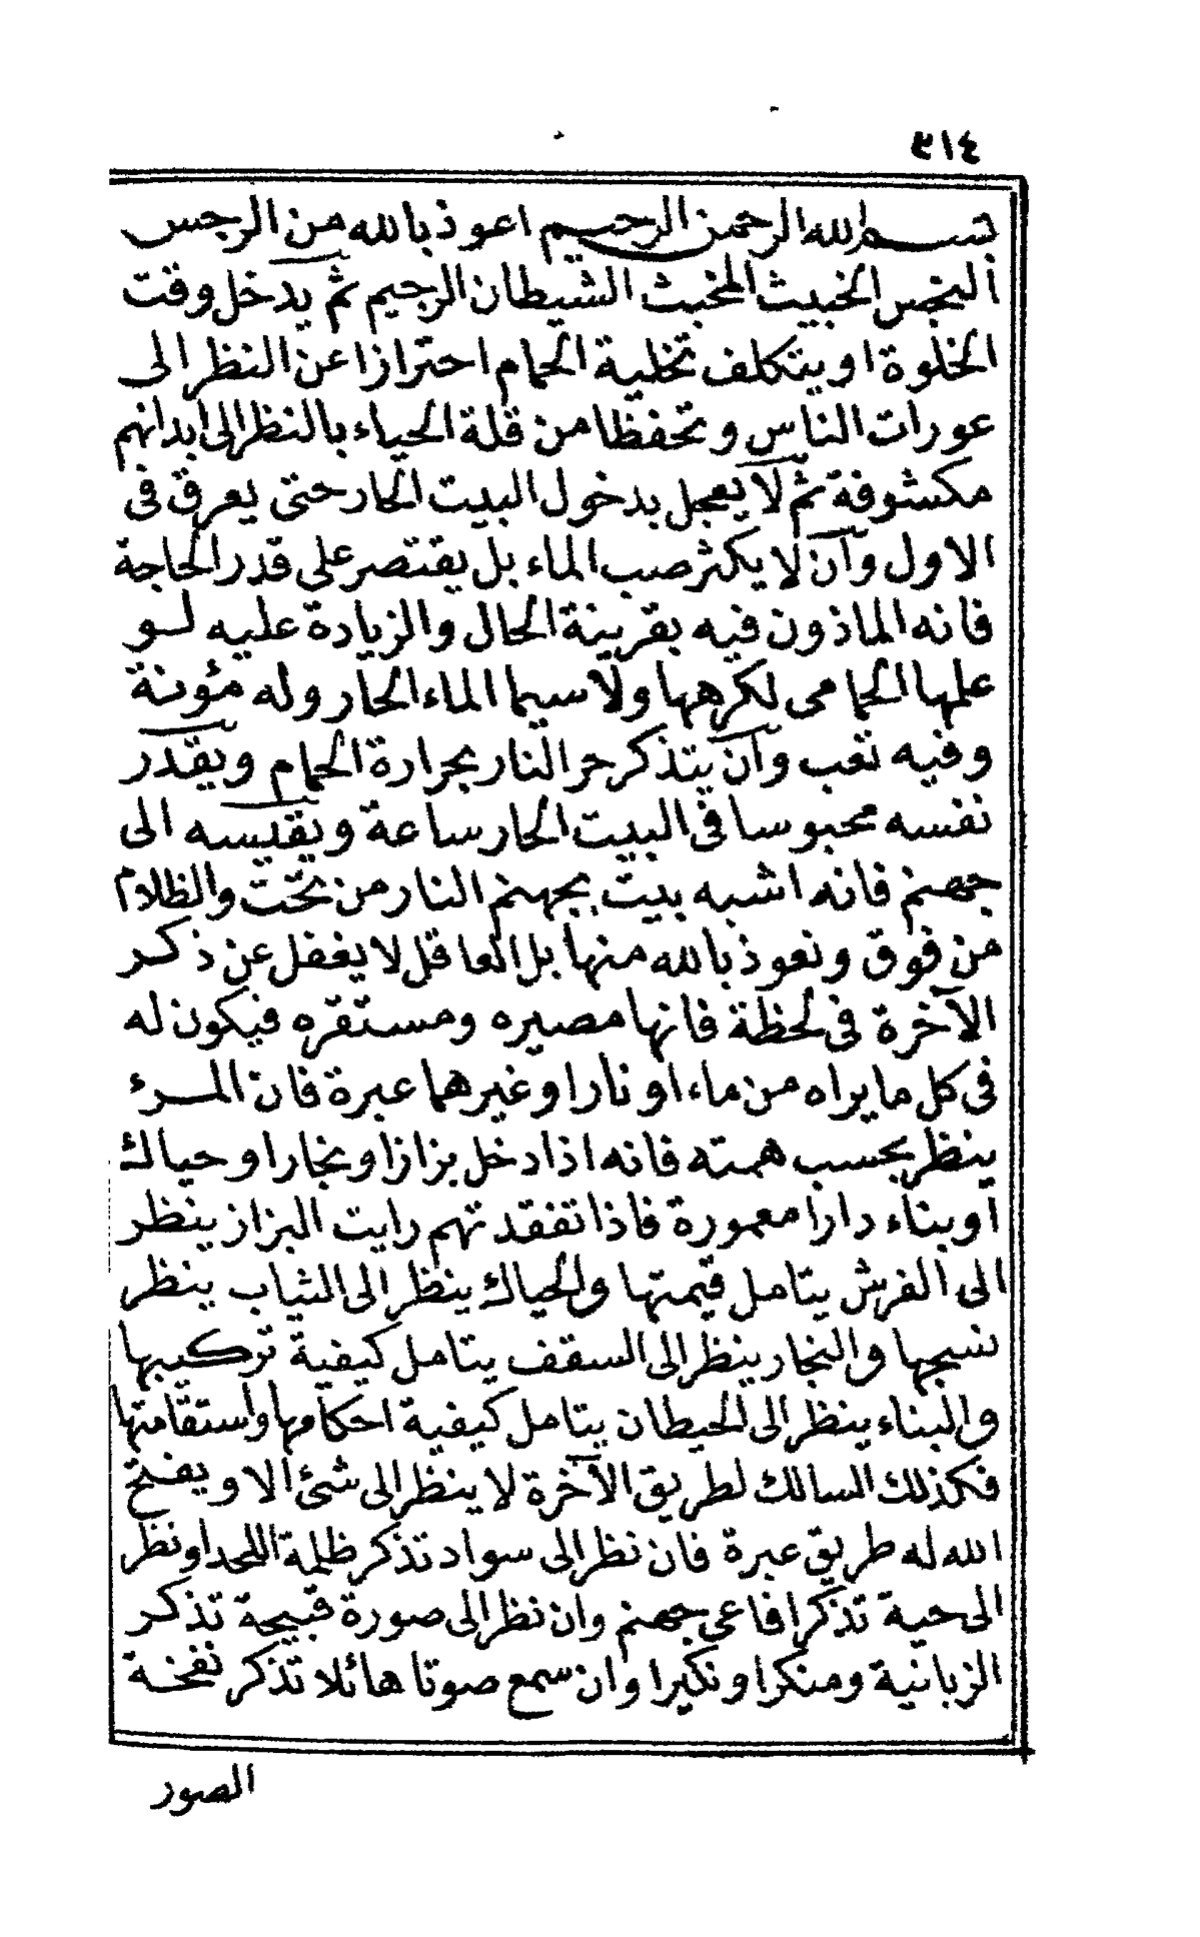 ٣١٤
بسم الله الرحمن الرحيم اعوذ بالله من الرجس
النجس الخبيث المخبث الشيطان الرجيم ثم يدخل وقت
الخلوة او يتكلف تخلية الحمام احترازا عن النظر الى
عورات الناس وتحفظا من قلة الحياء بالنظر الى ابدانهم
مكشوفة ثم لا يعجل بدخول البيت الحار حتى يعرق فى
الاول وان لا يكثر صب الماء بل يقتصر على قدر الحاجة
فانه الماذون فيه بقرينة الحال والزيادة عليه لو
علمها الحمامى لكرهها ولا سيما الماء الحار وله مؤنة
وفيه تعب وان يتذكر حر النار بحرارة الحمام ويقدر
نفسه محبوسا فى البيت الحار ساعة ويقيسه الى
جهنم فانه اشبه بيت بجهنم النار من تحت والظلام
من فوق ونعوذ بالله منها بل العاقل لا يغفل عن ذكر
الآخرة فى لحظة فانها مصيره ومستقره فيكون له
فى كل ما يراه من ماء او نار او غيرهما عبرة فان المرء
ينظر بحسب همته فانه اذا دخل بزاز او نجار او حياك
او بناء دارا معمورة فاذا تفقدتهم رايت البزاز ينظر
الى الفرش يتامل قيمتها والحياك ينظر الى الثياب ينظر
نسجها والنجار ينظر الى السقف يتامل كيفية تركيبها
والبناء ينظر الى الحيطان يتامل كيفية احكامها واستقامتها
فكذلك السالك لطريق الآخرة لا ينظر الى شئ الا ويفتح
الله له طريق عبرة فان نظر الى سواد تذكر ظلمة اللحد او نظر
الى حية تذكر افاعى جهنم وان نظر الى صورة قبيحة تذكر
الزبانية ومنكرا ونكيرا وان سمع صوتا هائلا تذكر نفخة
الصور